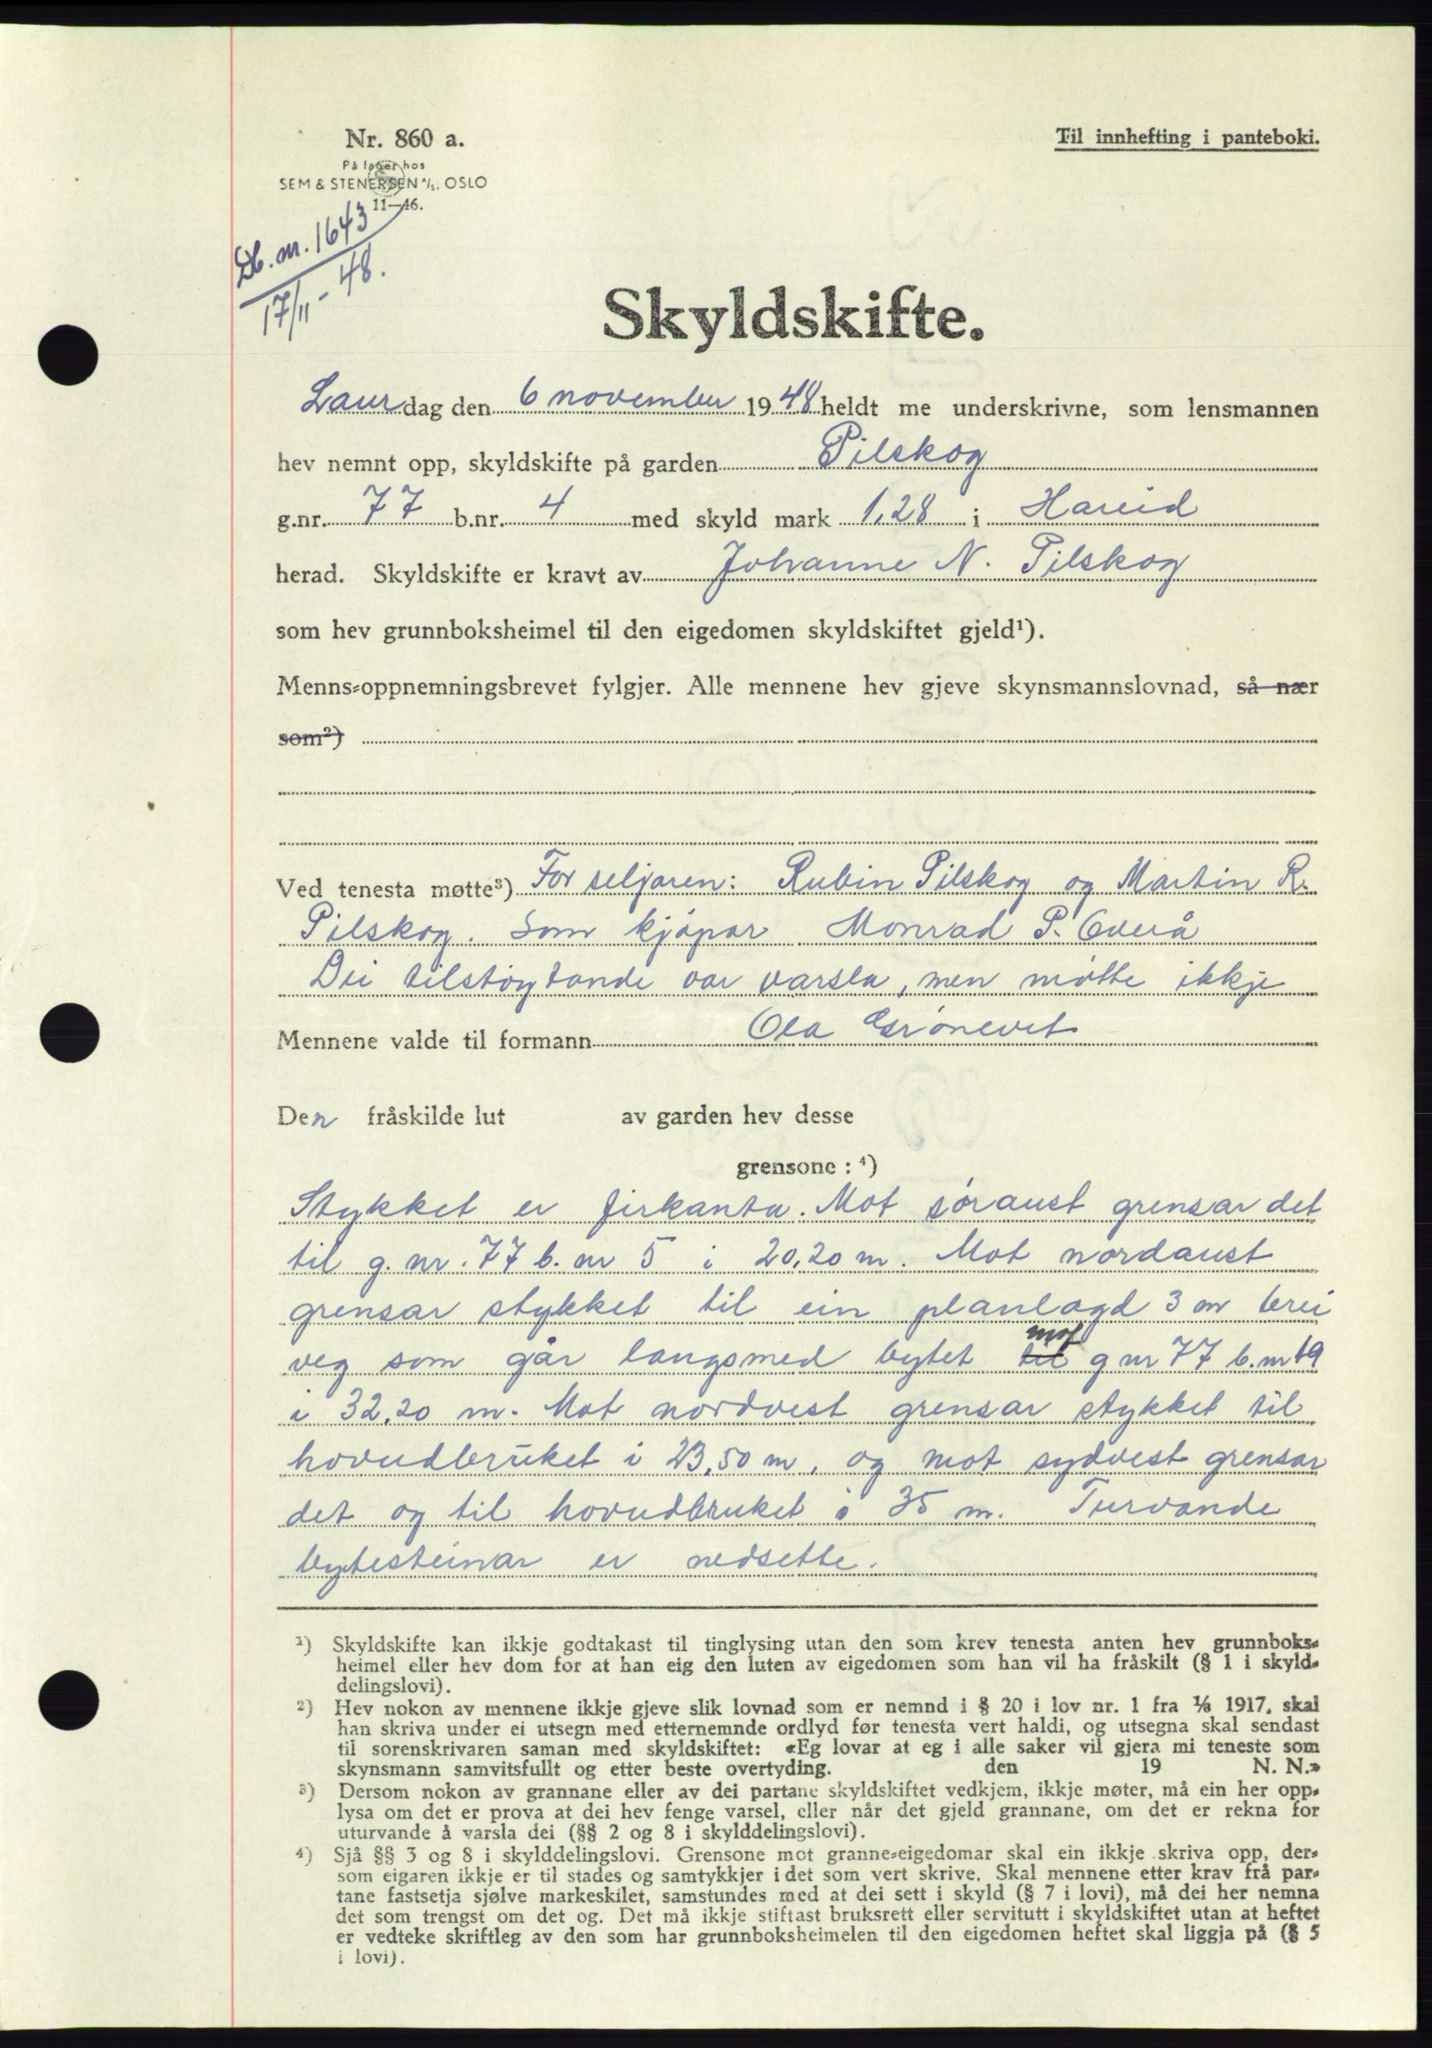 Nr. 860 a.
Til innhefting i panteboki.
På lager hos
SEM & STENERSEN A/S, OSLO
11—46.
Db. nr. 1643
17/11 - 48.
Skyldskifte.
Laurdag den 6 november 1948 heldt me underskrivne, som lensmannen
hev nemnt opp, skyldskifte på garden Pilskog
g.nr. 77 b.nr. 4 med skyld mark 1,28 i Hareid
herad. Skyldskifte er kravt av Johanne N. Pilskog
som hev grunnboksheimel til den eigedomen skyldskiftet gjeld¹).
Menns-oppnemningsbrevet fylgjer. Alle mennene hev gjeve skynsmannslovnad, så nær
som²)
Ved tenesta møtte³) For seljaren: Rubin Pilskog og Martin R.
Pilskog. Som kjøpar Monrad P. Overå
Dei tilstøytande var varsla, men møtte ikkje
Mennene valde til formann Ola Grønevet
Den fråskilde lut av garden hev desse
grensone : ⁴)
Stykket er firkanta. Mot søraust grensar det
til g. nr. 77 b. nr 5 i 20,20 m. Mot nordaust
grensar stykket til ein planlagd 3 m brei
veg som går langsmed bytet til mot g nr 77 b. nr 19
i 32,20 m. Mot nordvest grensar stykket til
hovudbruket i 23,50 m, og mot sydvest grensar
det og til hovudbruket i 35 m. Turvande
bytesteinar er nedsette.
¹) Skyldskifte kan ikkje godtakast til tinglysing utan den som krev tenesta anten hev grunnboks-
heimel eller hev dom for at han eig den luten av eigedomen som han vil ha fråskilt (§ 1 i skyld-
delingslovi).
²) Hev nokon av mennene ikkje gjeve slik lovnad som er nemnd i § 20 i lov nr. 1 fra 1/6 1917, skal
han skriva under ei utsegn med etternemnde ordlyd før tenesta vert haldi, og utsegna skal sendast
til sorenskrivaren saman med skyldskiftet: «Eg lovar at eg i alle saker vil gjera mi teneste som
skynsmann samvitsfullt og etter beste overtyding. den 19 N. N.»
³) Dersom nokon av grannane eller av dei partane skyldskiftet vedkjem, ikkje møter, må ein her opp-
lysa om det er prova at dei hev fenge varsel, eller når det gjeld grannane, om det er rekna for
uturvande å varsla dei (§§ 2 og 8 i skylddelingslovi).
⁴) Sjå §§ 3 og 8 i skylddelingslovi. Grensone mot granne-eigedomar skal ein ikkje skriva opp, der-
som eigaren ikkje er til stades og samtykkjer i det som vert skrive. Skal mennene etter krav frå par-
tane fastsetja sjølve markeskilet, samstundes med at dei sett i skyld (§ 7 i lovi), må dei her nemna
det som trengst om det og. Det må ikkje stiftast bruksrett eller servitutt i skyldskiftet utan at heftet
er vedteke skriftleg av den som har grunnboksheimelen til den eigedomen heftet skal liggja på (§ 5
i lovi).